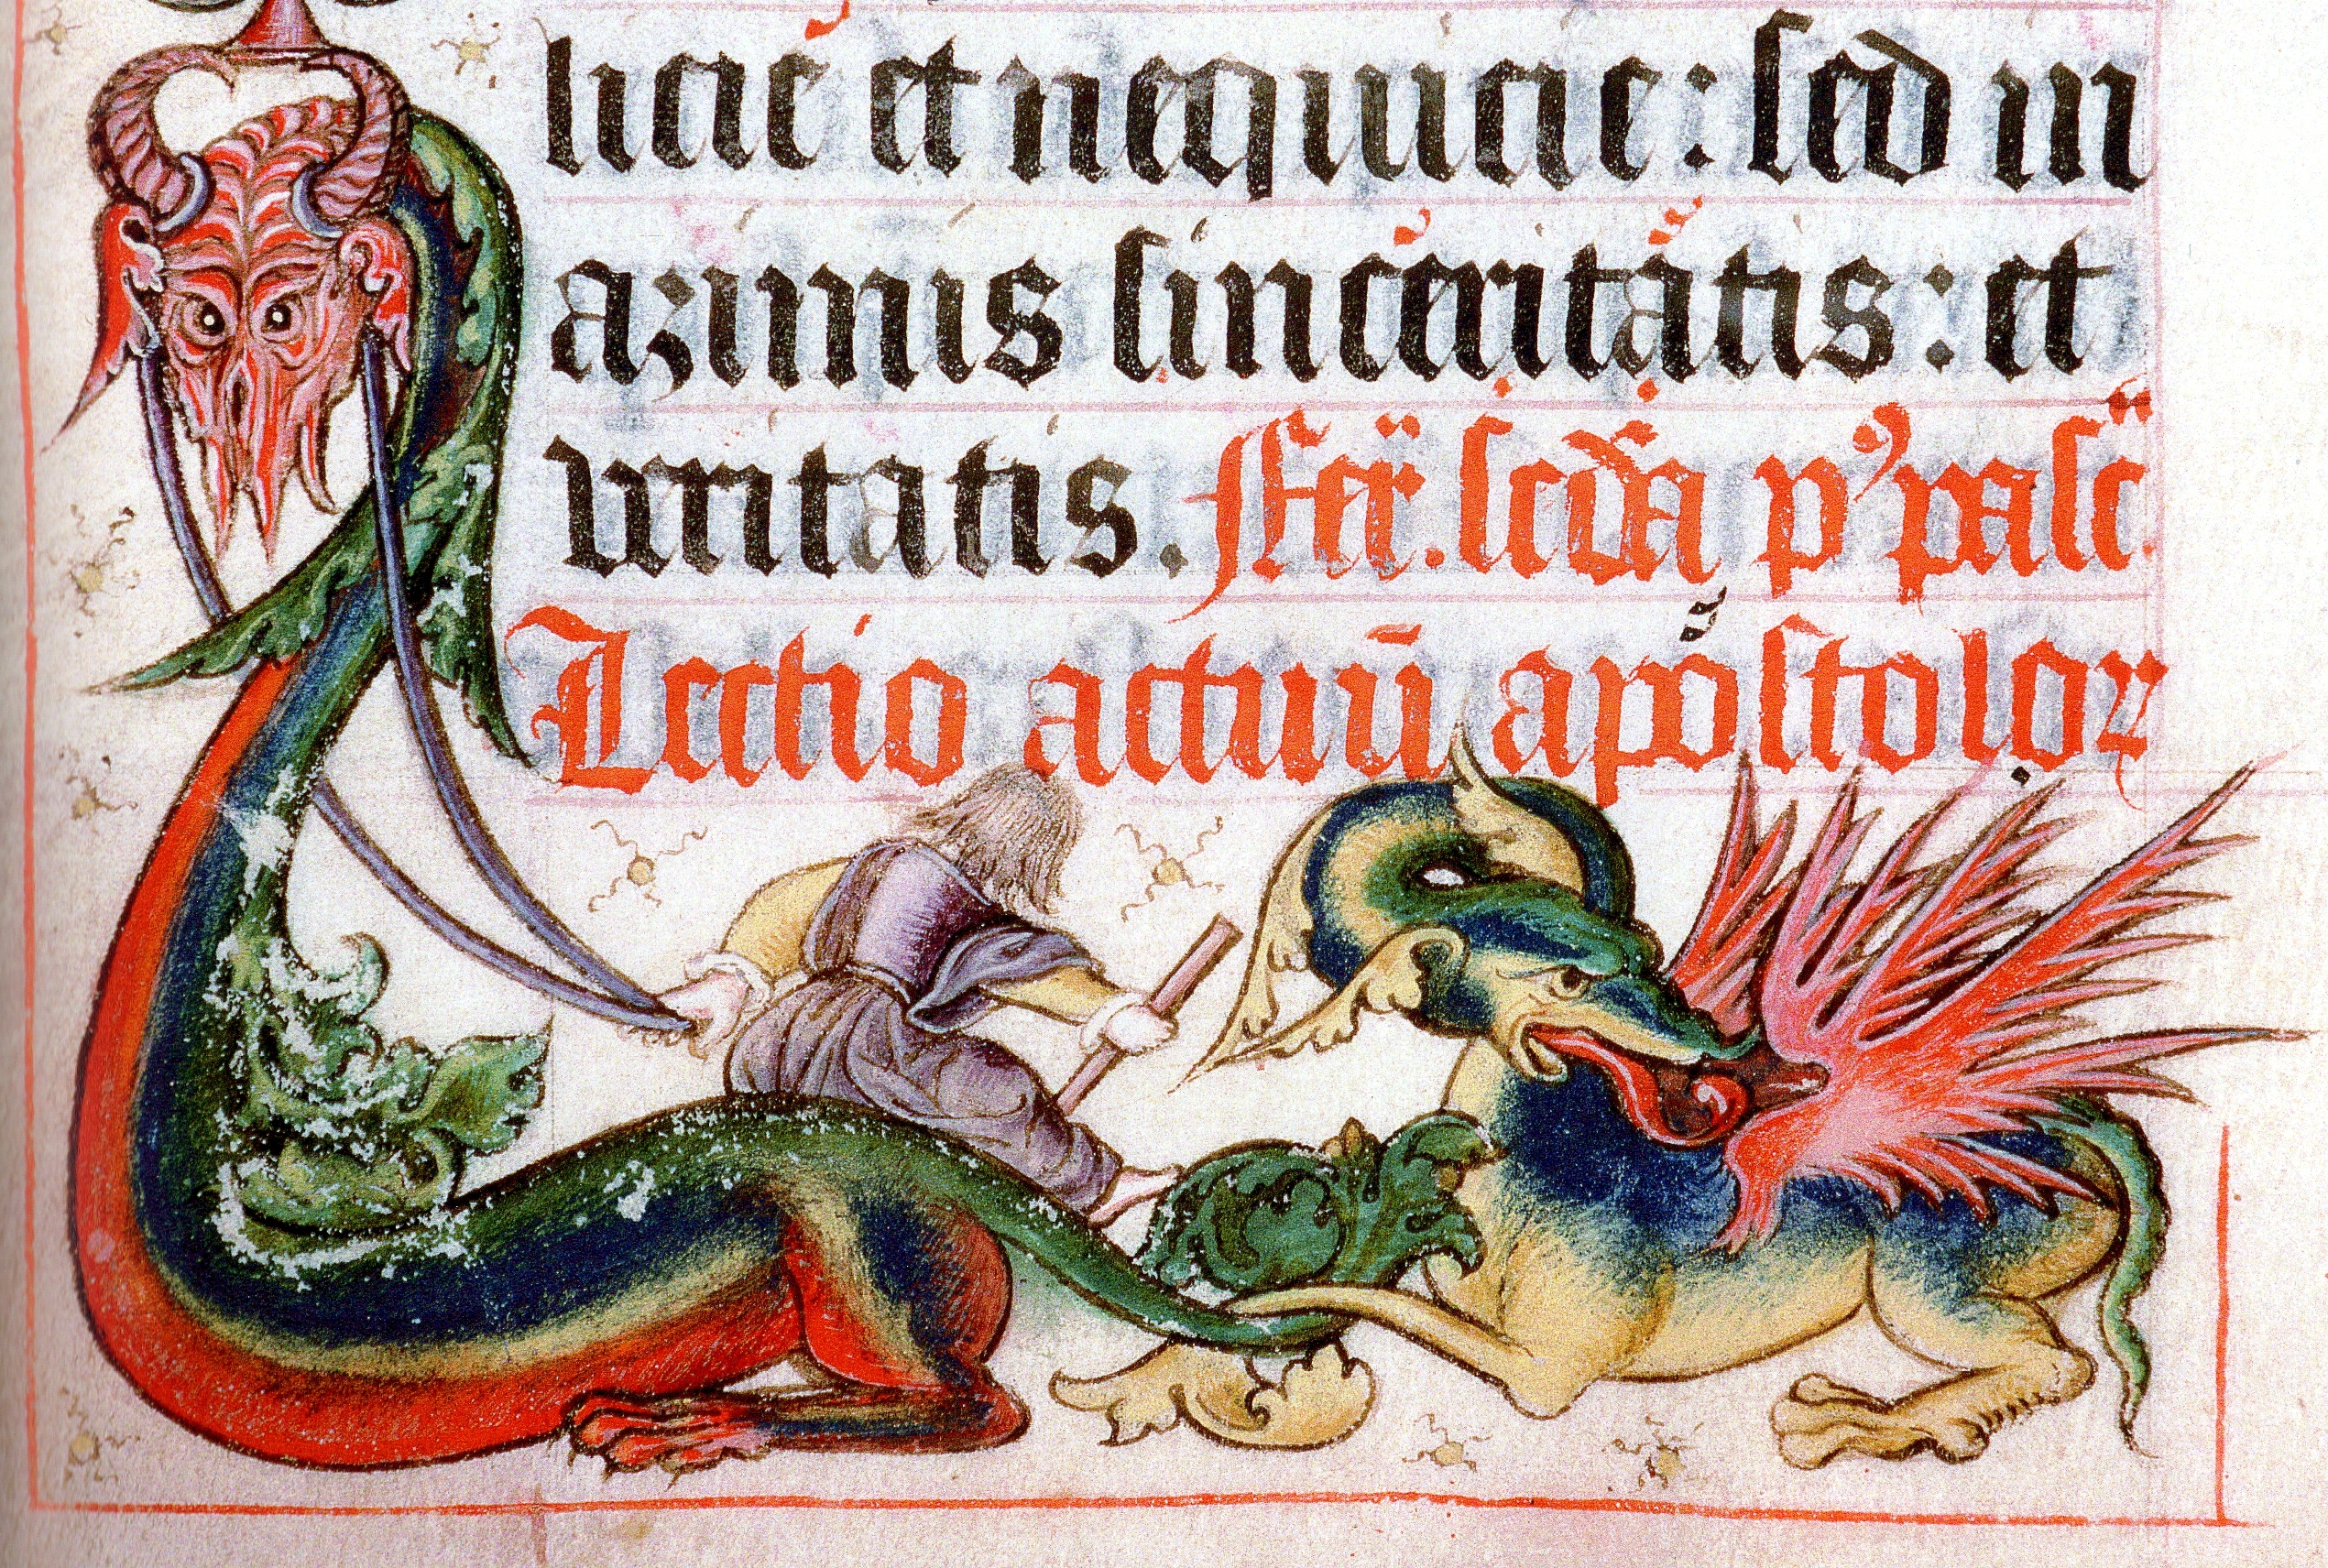 licie et nequicie: sed in
azimis sinceritatis: et
veritatis. Fer̄. scd̄a p' pasc̄.
Lectio actuū apostoloꝝ